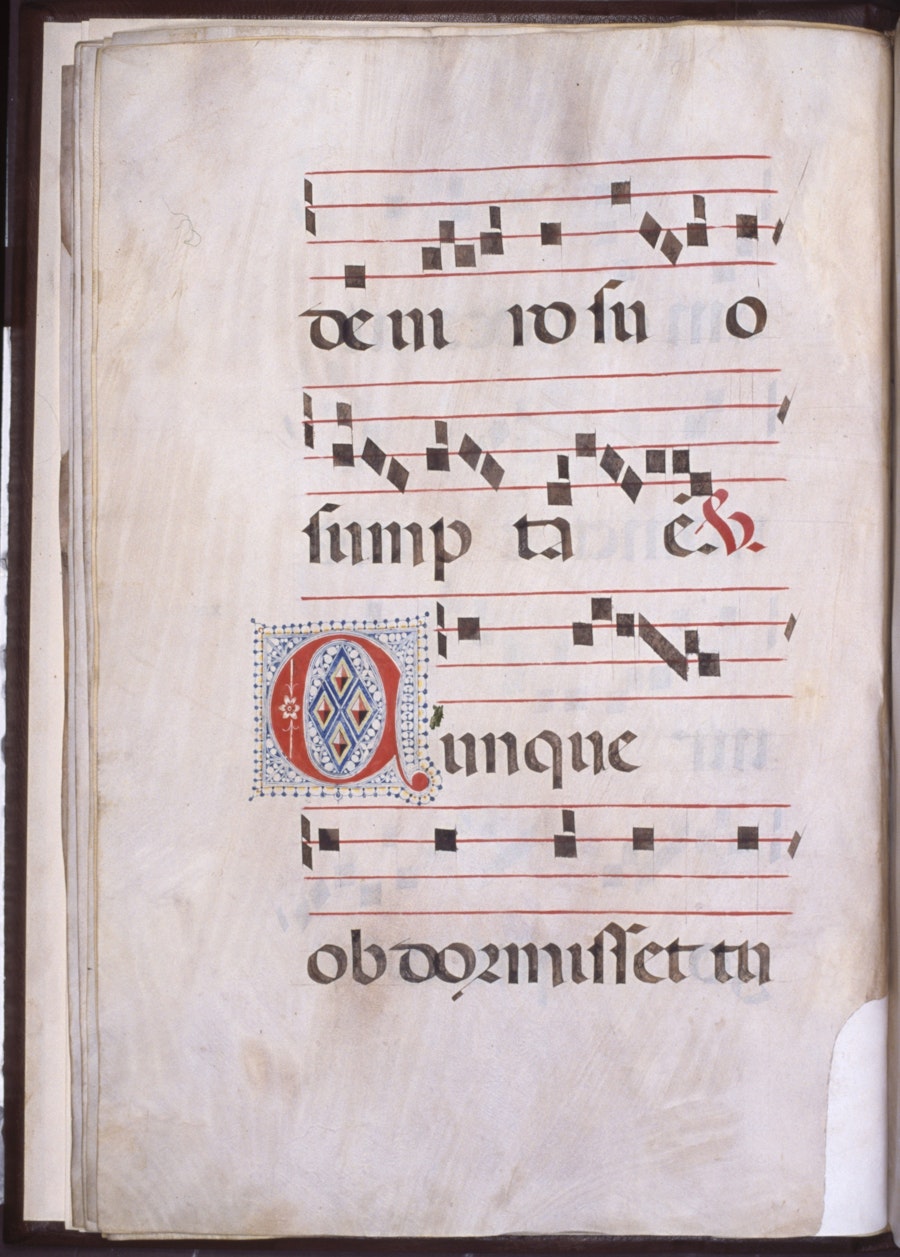 de ui ro su o
sump ta ē. V.
Qunque
obdormisset tu